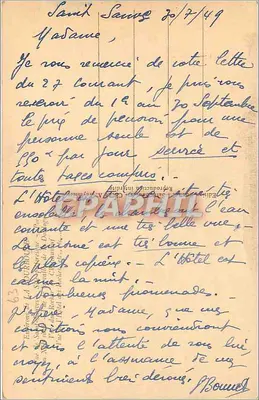 Saint Sauves 30/7/49
Madame,
Je vous remercie de votre lettre
du 27 courant, je puis vous
recevoir du 1er au 30 Septembre
le prix de pension pour une
personne seule est de
par jour, service et
toutes taxes compris. -
L'Hôtel est
ensoleillé l'eau
courante et une très belle vue -
La cuisine est très bonne et
le plat copieux. - L'Hôtel est
calme la nuit. -
nombreuses promenades. -
J'espère, Madame, que mes
conditions vous conviendront
et dans l'attente de vous lire,
croyez, à l'assurance de mes
sentiments bien dévoués.
CARAPHIL